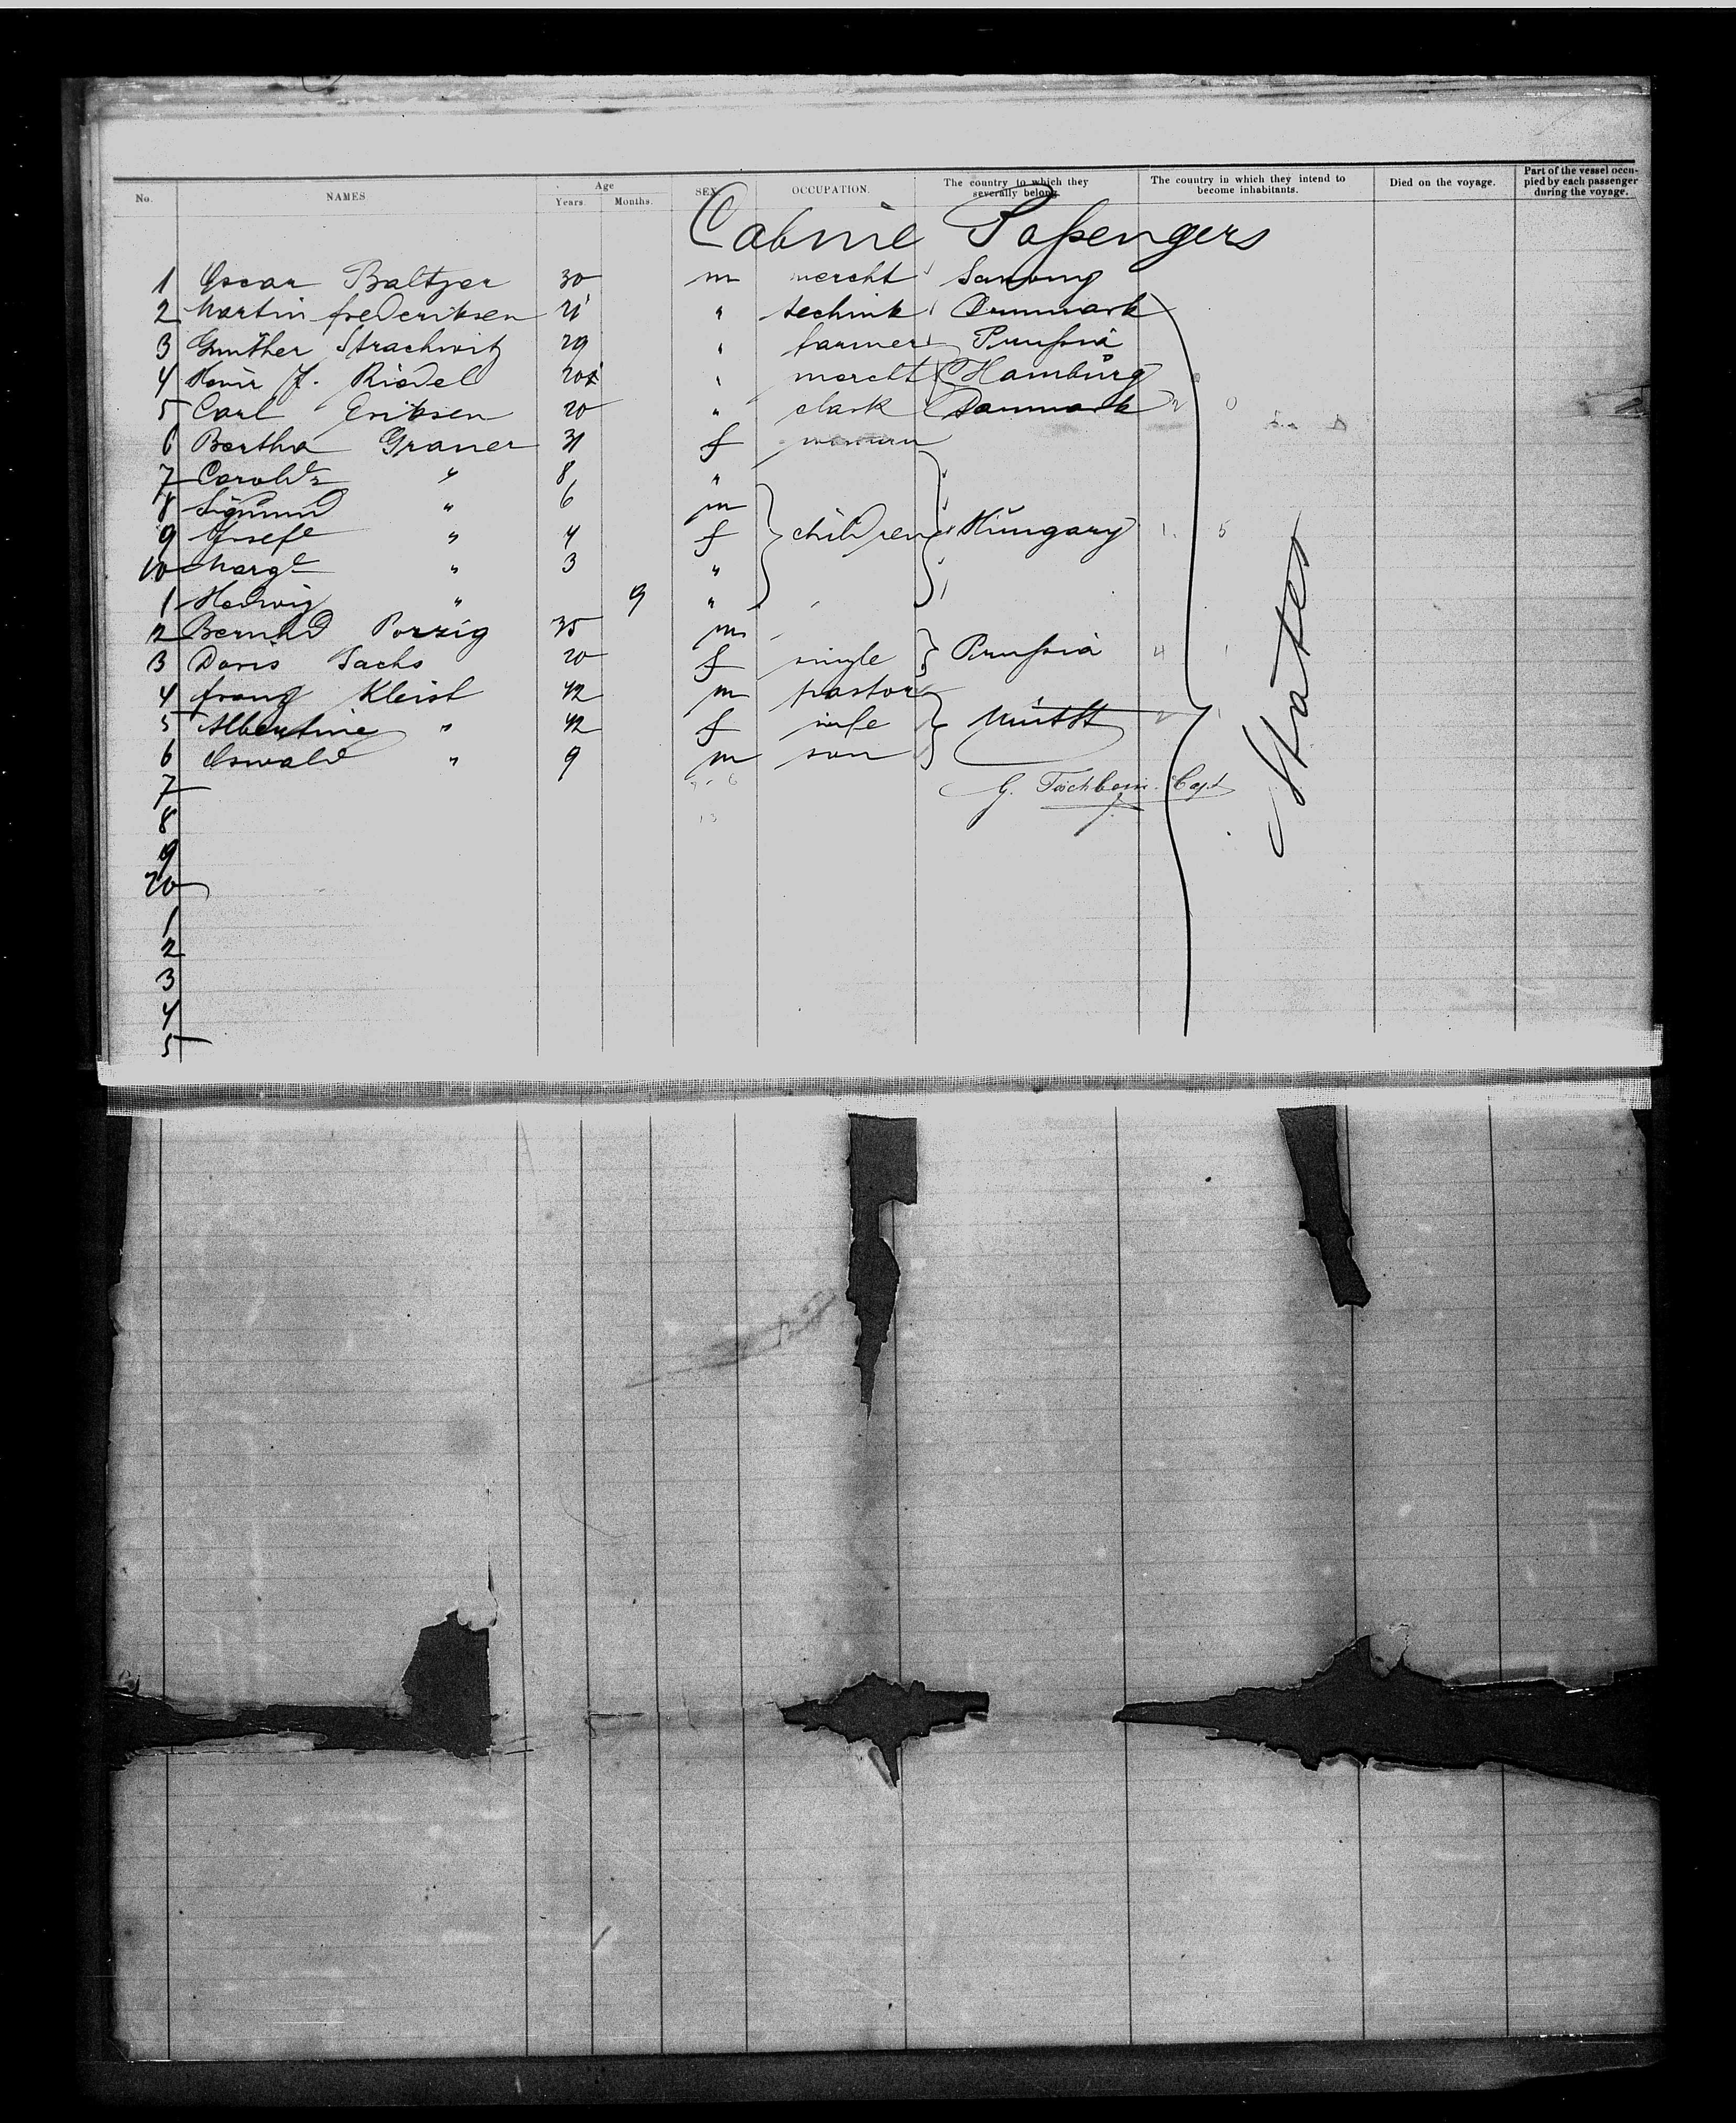 No. NAMES Age Years. Months. SEX. OCCUPATION. The country to which they severally belong. The country in which they intend to become inhabitants. Died on the voyage. Part of the vessel occupied by each passenger during the voyage.
Cabine Passengers
1 Oscar Baltzer 30 m mercht
2 Martin frederiksen 21 " technik Denmark
3 Gunther Strachwitz 29 " farmer Prussia
4 Riedel " mercht Hamburg
5 Carl Eriksen 20 " clark Danmark
6 Bertha Graner 31 f
7 " 8 "
8 Sigmund " 6 m
9 Josefe " 4 f children Hungary 1 5
10 Marg " 3 "
1 Hedwig " 9 "
12 Bernhd Porzig 35 m
13 Doris Sachs 20 f single Prussia 4 1
4 franz Kleist 42 m pastor
5 Albertine " 42 f wife
6 Oswald " 9 m son
7 G. Capt
8
9
20
1
2
3
4
5
States